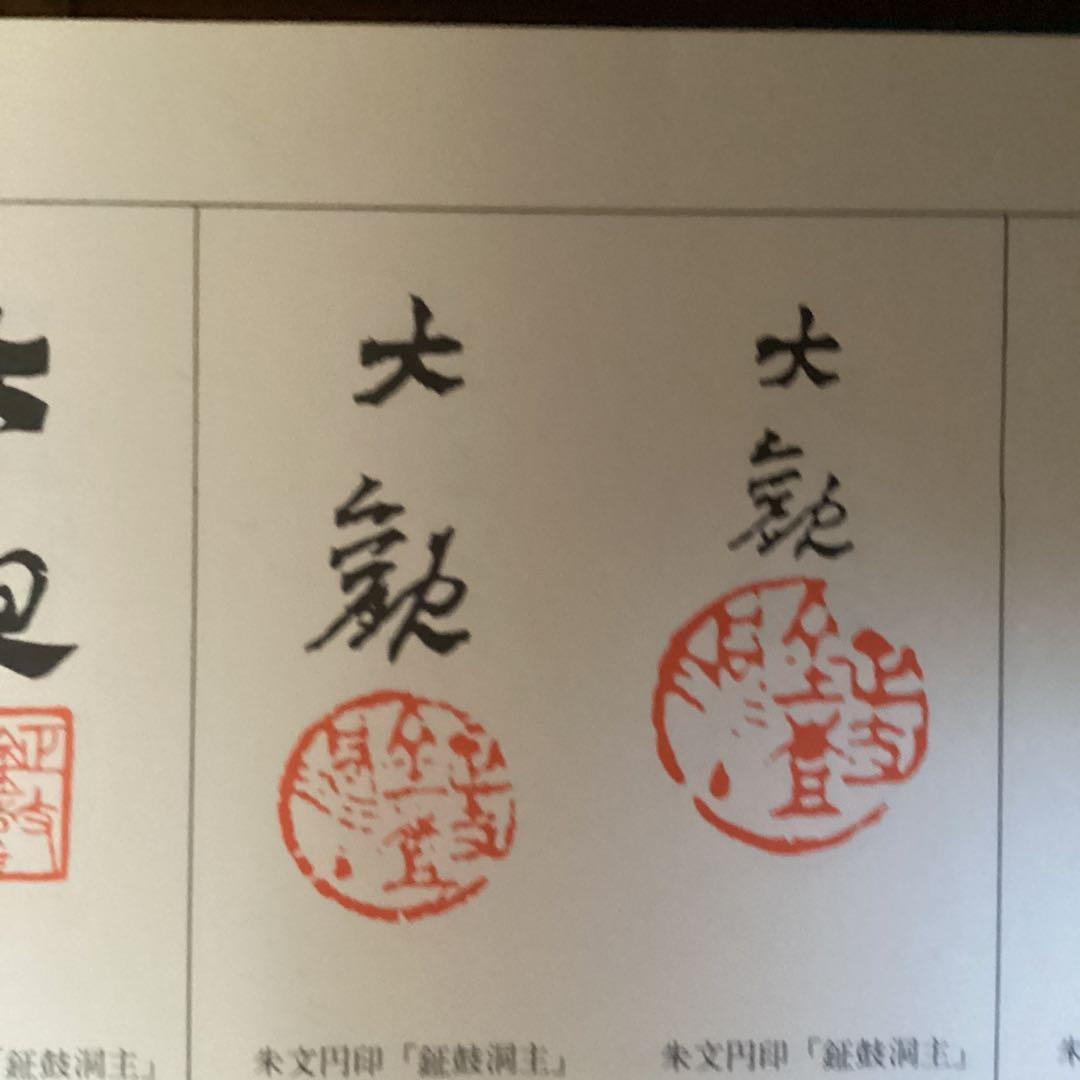 大観
大観
「鉦鼓洞主」
朱文円印「鉦鼓洞主」
朱文円印「鉦鼓洞主」